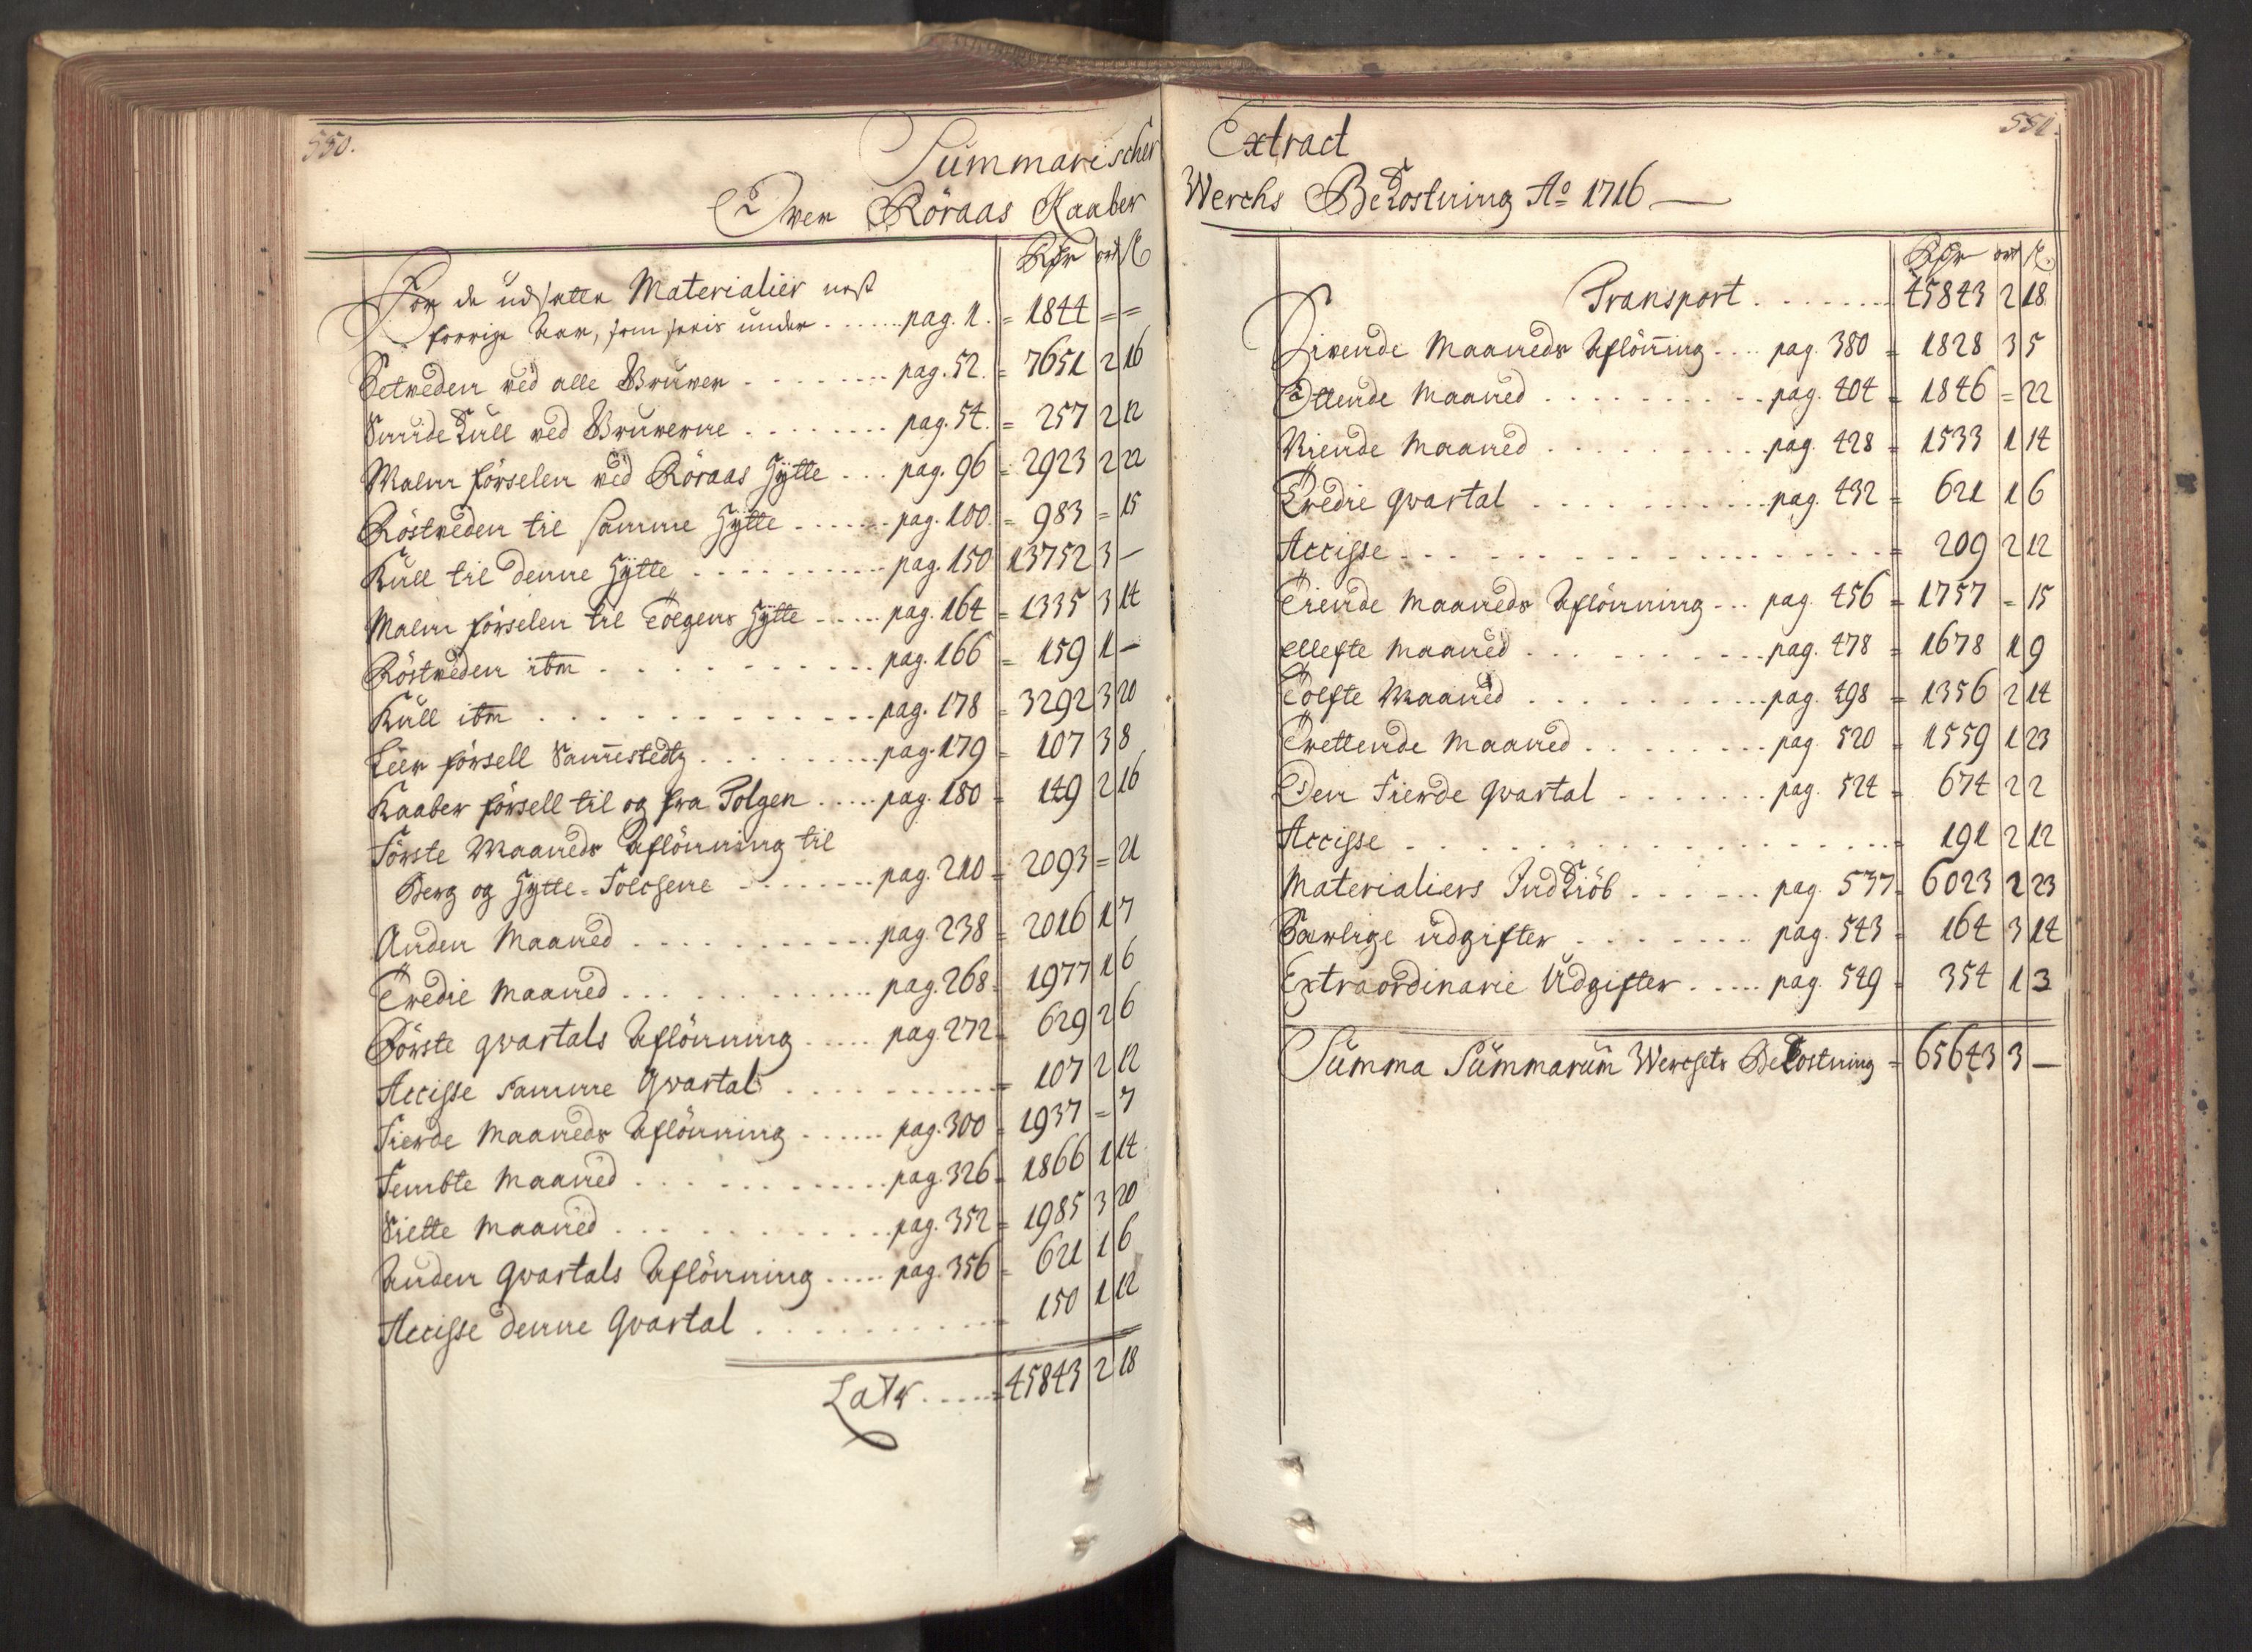 550.
Summarischer
Over Röraas Kaaber
Rdr ort ß
For de udsatte Materialier nest
forrige Aar, som sees under ...... pag. 1. = 1844 = =
Setveden ved alle Gruver ........ pag. 52. = 7651 2 16
Smide Kull ved Gruverne ........ pag. 54. = 257 2 12
Malm förselen ved Röraas Hytte ... pag. 96 = 2923 2 22
Röstveden til samme Hytte ....... pag. 100. = 983 = 15
Kull til denne Hytte .......... pag. 150 13752 3 —
Malm förselen til Tolgens Hytte ...... pag. 164 = 1335 3 14
Röstveden ibm ........... pag. 166 = 159 1 —
Kull ibm ............. pag. 178 = 3292 3 20
Leer försell Sammestedtz ......... pag. 179 = 107 3 8
Kaaber försell til og fra Tolgen ..... pag. 180 = 149 2 16
Förste Maaneds Aflönning til
Berg og Hytte-Folchene ....... pag. 210 = 2093 = 21
Anden Maaned ........... pag. 238 = 2016 1 7
Tredie Maaned ............. pag. 268 = 1977 1 6
Förste qvartals Aflönning ..... pag. 272 = 629 2 6
Accisse samme Qvartal .......... = 107 2 12
Fierde Maaneds Aflönning ...... pag. 300 = 1937 = 7
Fembte Maaned ............ pag. 326 = 1866 1 14
Siette Maaned ............ pag. 352 = 1985 3 20
Anden Qvartals Aflönning ..... pag. 356 = 621 1 6
Accisse denne Qvartal .......... = 150 1 12
Latr ..... = 45843 2 18
551.
Extract
Werchs Bekostning Ao 1716 —
Rdr ort ß
Transport ....... 45843 2 18
Sivende Maaneds Aflöning .... pag. 380 = 1828 3 5
Ottende Maaned ......... pag. 404 = 1846 = 22
Niende Maaned ......... pag. 428 = 1533 1 14
Tredie qvartal .......... pag. 432 = 621 1 6
Accisse ................ = 209 2 12
Tiende Maaneds Aflönning ... pag. 456 = 1757 = 15
ellefte Maaned ......... pag. 478 = 1678 1 9
Tolfte Maaned ......... pag. 498 = 1356 2 14
Trettende Maaned ........ pag. 520 = 1559 1 23
Den Fierde qvartal ....... pag. 524 = 674 2 2
Accisse ................ = 191 2 12
Materialiers Indkiöb ...... pag. 537 = 6023 2 23
Særlige udgifter ....... pag. 543 = 164 3 14
Extraordinarie Udgifter ..... pag. 549 = 354 1 3
Summa Summarum Werchets Bekostning = 65643 3 —